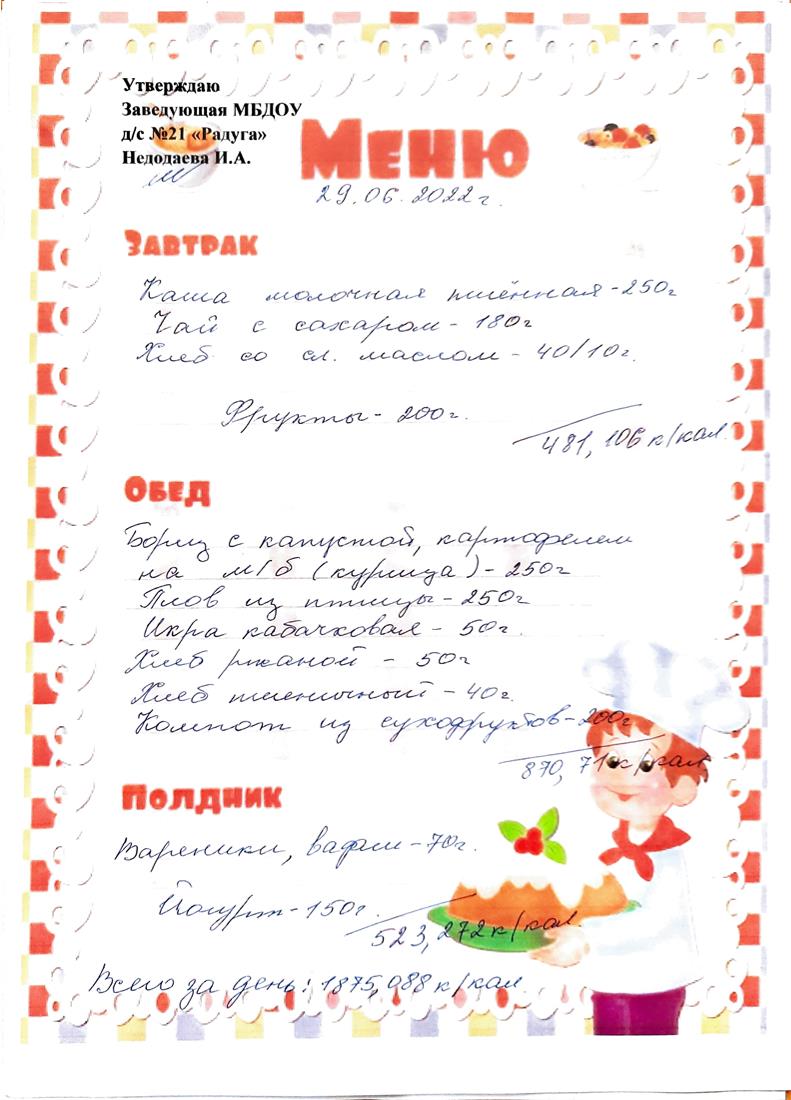 Утверждаю
Заведующая МБДОУ
д/с №21 «Радуга»
Недодаева И.А.
Меню
29.06.2022г.
Завтрак
Каша молочная пшённая - 250г
Чай с сахаром - 180г
Хлеб со сл. маслом - 40/10г.
Фрукты - 200г.
481,106 к/кал.
Обед
Борщ с капустой, картофелем
на м/б (курица) - 250г
Плов из птицы - 250г
Икра кабачковая - 50г.
Хлеб ржаной - 50г
Хлеб пшеничный - 40г.
Компот из сухофруктов - 200г
870,71 к/кал.
Полдник
Вареники, вафли - 70г.
Йогурт - 150г.
523,272 к/кал.
Всего за день: 1875,088 к/кал.